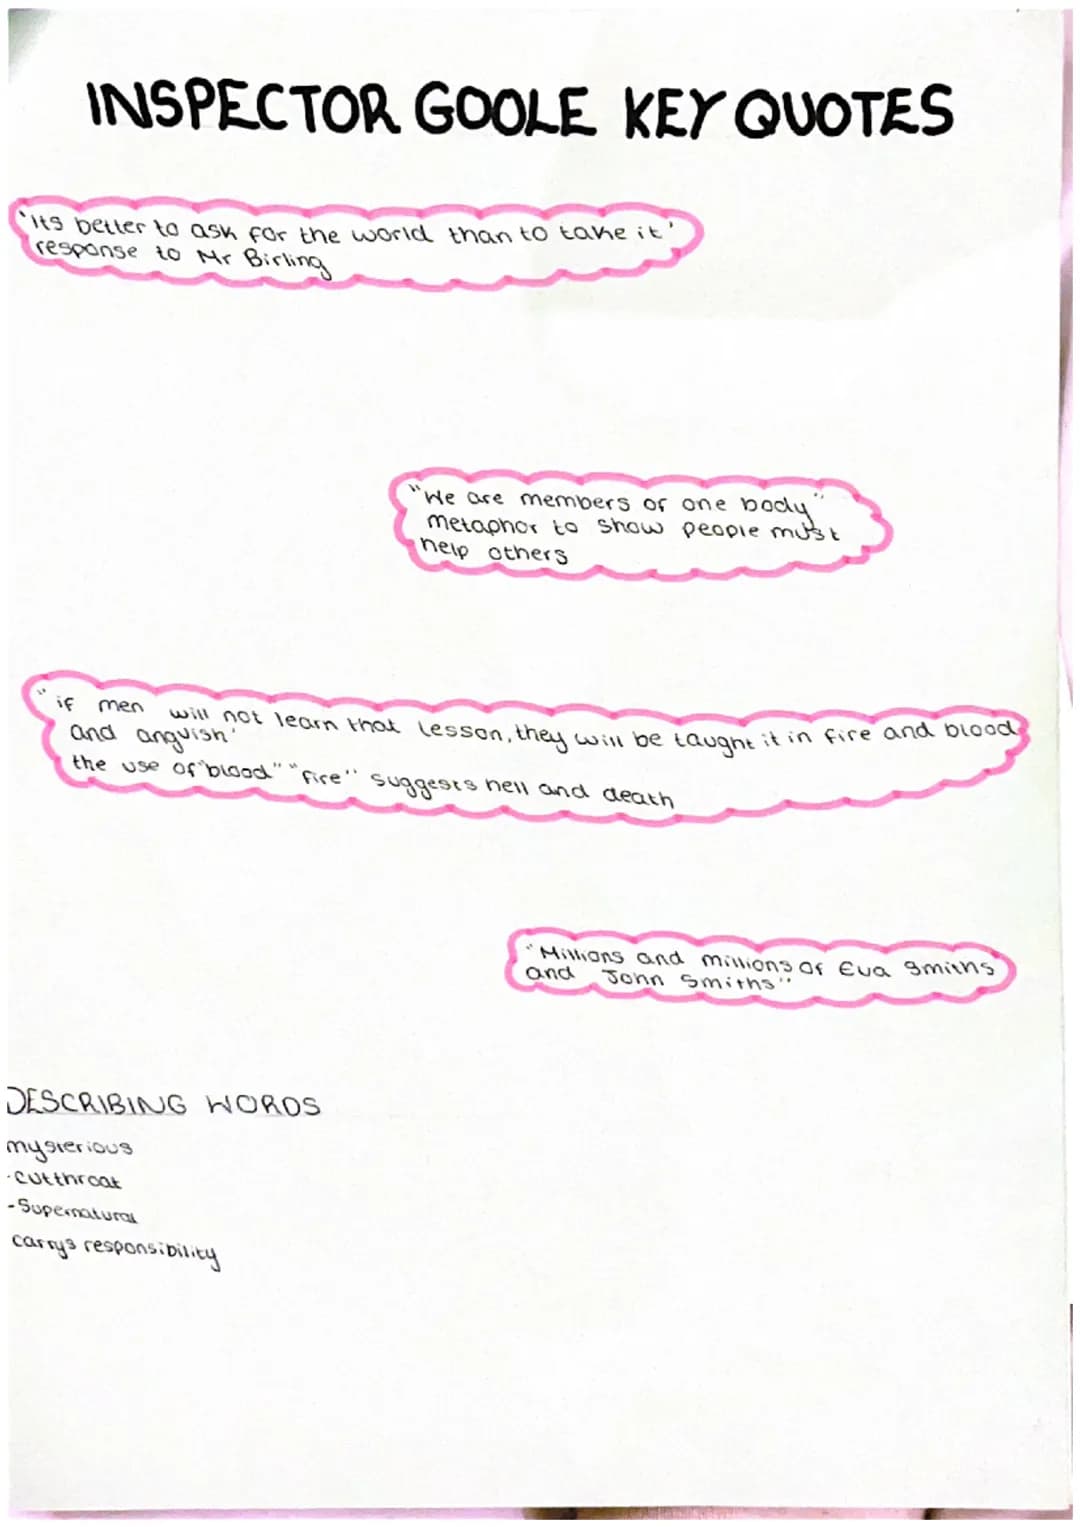 INSPECTOR GOOLE KEY QUOTES
'its better to ask for the world than to take it'
response to Mr Birling
"We are members of one body"
metaphor to show people must
help others
"if men will not learn that lesson, they will be taught it in fire and blood
and anguish'
the use of "blood" "fire" suggests hell and death
"Millions and millions of Eva Smiths
and John Smiths"
DESCRIBING WORDS
mysterious
-cutthroat
-Supernatural
carrys responsibility